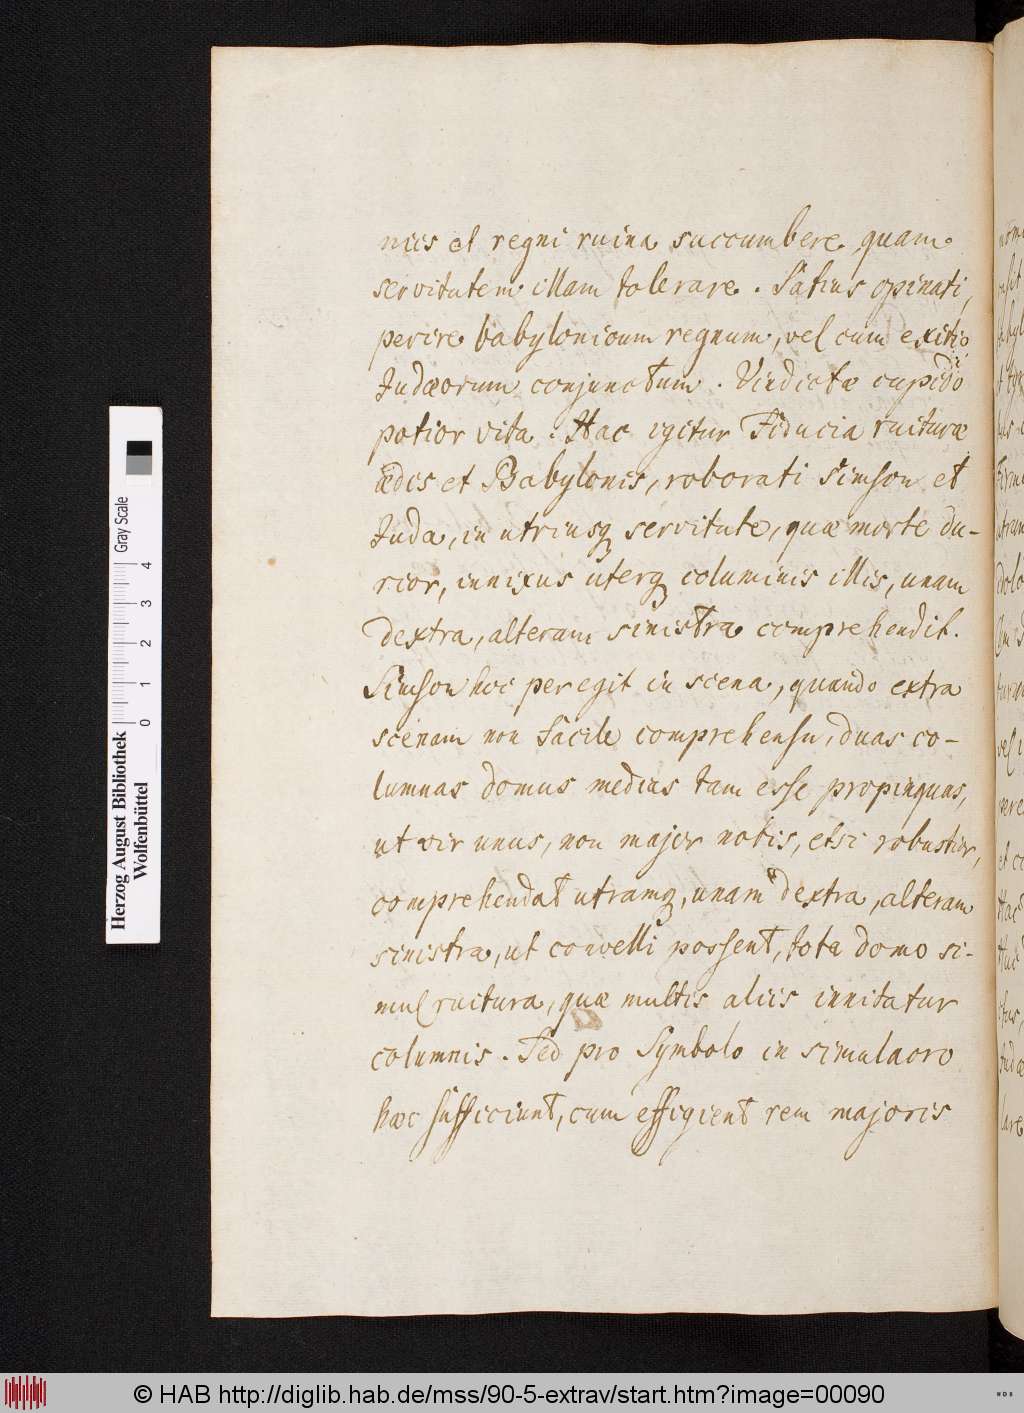 niis et regni ruina succumbere quam
servitutem illam tolerare. Satius opinati,
perire babylonicum regnum, vel cum exitio
Judæorum conjunctum. Vindictæ cupido
potior vita. Hac igitur Fiducia ruituræ
ædis et Babylonis, roborati Simson et
Juda, in utriusq servitute, quæ morte du-
rior, innixus uterq columinis illis, unam
dextra, alteram sinistra comprehendit.
Simson hoc peregit in scena, quando extra
scenam non facile comprehensu, duas co-
lumnas domus medias tam esse propinquas,
ut vir unus, non major nobis, etsi robustior,
comprehendat utramq, unam dextra, alteram
sinistra, ut convelli possent, tota domo si-
mul ruitura, quæ multis aliis innitatur
columnis. Sed pro Symbolo in simulacro
hæc sufficiunt, cum effigient rem majoris
Herzog August Bibliothek
Wolfenbüttel
Gray Scale
0 1 2 3 4
© HAB http://diglib.hab.de/mss/90-5-extrav/start.htm?image=00090